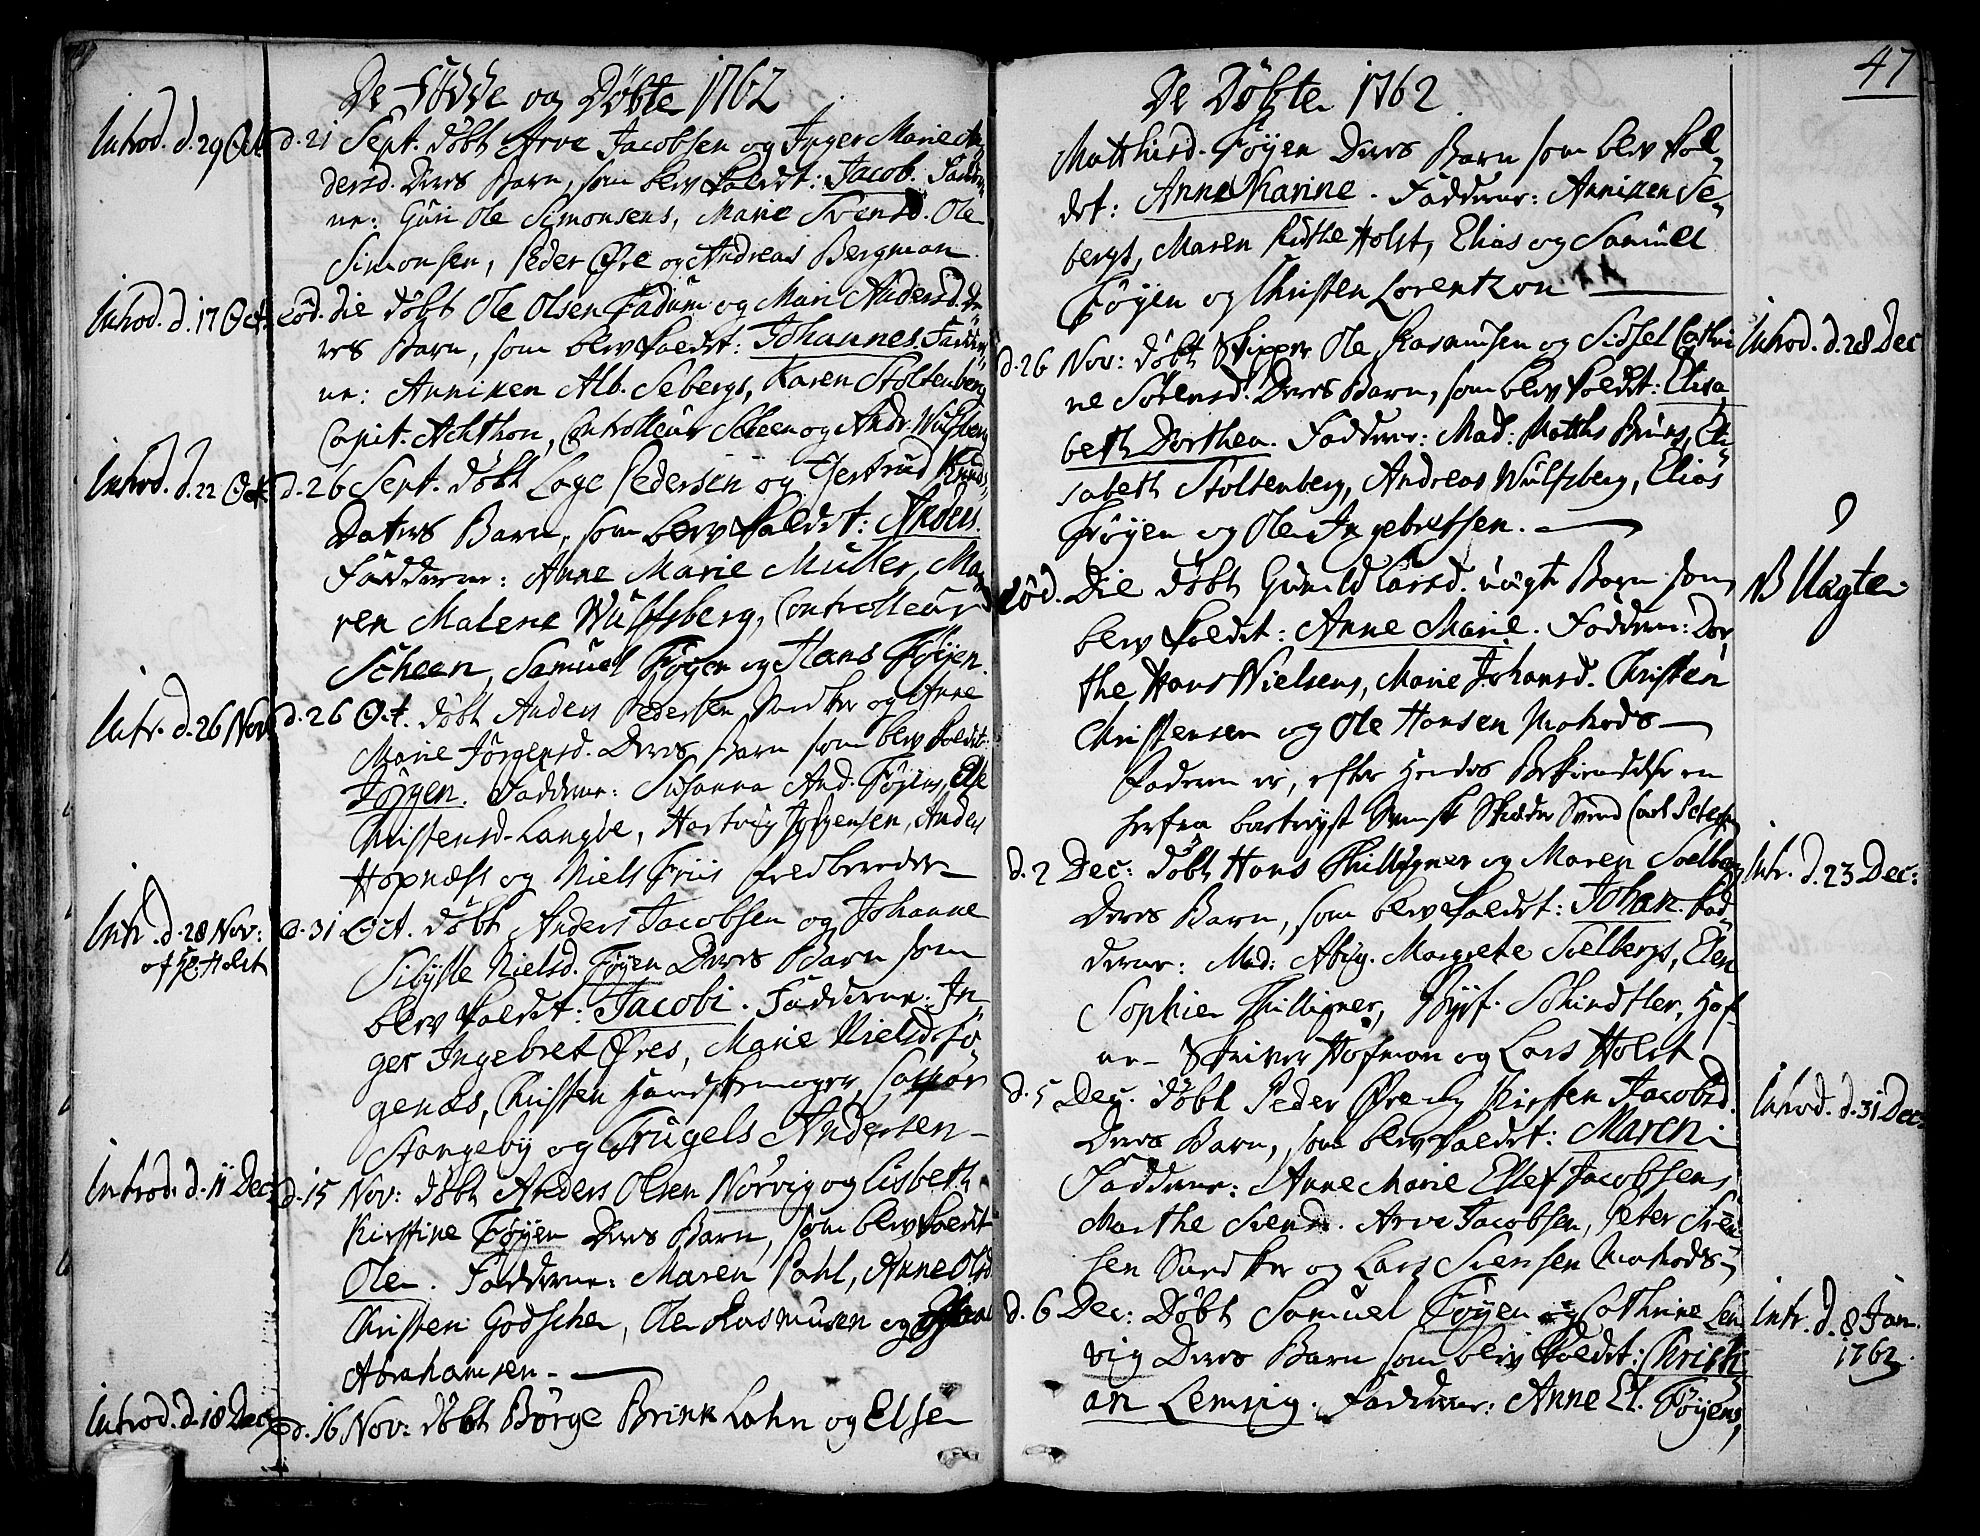 De Födde og Döbte 1762
Introd. d. 29 Oct. d. 21 Sept. döbt Arve Jacobsen og Inger Marie An-
dersd. Deres Barn, som blev kaldet: Jacob. Fadde-
rne: Guri Ole Simonsens, Marie Svensd. Ole
Simonsen, Peder Øre og Andreas Bergman.
Introd. d. 17 Oct. Eod. die döbt Ole Olsen Fadum og Mari Andersd. De-
res Barn, som blev kaldet: Johannes. Fadde-
rne: Anniken Alb. Sebergs, Karen Stoltenberg
Capit. Achthon, Controlleur Scheen og Andr. Wulfsberg
Introd. d. 22 Oct. d. 26 Sept. döbt Lage Pedersen og Gertrud Knuds-
Daters Barn, som blev kaldet: Anders.
Fadderne: Anne Marie Muller, Ma-
ren Malene Wulfsberg, Controlleur
Scheen, Samuel Föyen og Hans Föyen.
Intr. d. 26 Nov. d. 26 Oct. döbt Anders Pedersen og Anne
Marie Jörgensd. Deres Barn som blev kaldet:
Jörgen. Fadderne: Susanna And. Föyens, Ole
Christensd. Langöe, Hartvig Jörgensen, Anders
Hopnæss og Niels Friis
Intr. d. 28 Nov: d. 31 Oct. döbt Anders Jacobsen og Johanne
af Hr. Holst
Sibylle Nielsd. Föyen Deres Barn som
blev kaldet: Jacobi. Fadderne: In-
ger Ingebret Øres, Marie Nielsd. Fö-
genæs, Christen Handskemager, Casper
Stangeby og Trugels Andersen
Introd. d. 11 Dec. d. 15 Nov: döbt Anders Olsen Norvig og Lisbeth
Kirstine Föyen Deres Barn, som blev kaldet
Ole. Fadderne: Maren Pahl, Anne Olsd.
Christen Godschen, Ole Rasmusen og
Abrahamsen.
Introd. d. 18 Dec. d. 16 Nov: döbt Börge Brink Lohn og Else
47
De Döbte 1762
Matthisd. Föyen Deres Barn som blev kal-
det: Anne Karine. Fadderne: Anniken Se-
bergs, Maren Holst, Elias og Samuel
Föyen og Christen Lorentzon
d. 26 Nov: döbt Skipper Ole Rasmusen og Sidsel Cathri- Introd. d. 28 Dec
ne Sörensd. Deres Barn, som blev kaldet: Elisa-
beth Dorthea. Fadderne: Mad: Matths Bruns, Eli-
sabeth Stoltenberg, Andreas Wulfsberg, Elias
Föyen og Ole Ingebretsen.
Eod. Die döbt Gunild Larsd. uægte Barn som NB Uægte
blev kaldet: Anne Marie. Fadderne: Dor-
the Hans Nielsens, Marie Johansd. Christen
Christensen og Ole Hansen
Faderen er, efter Hendes Bekiendelse en
herfra bortreyst Svensk Skræder Svend Carl Peterse
d. 2 Dec: döbt Hans Thilligner og Maren Soelberg Intr. d. 23 Dec:
Deres Barn, som blev kaldet: Johan. Fad-
derne: Mad: Abig. Margrete Soelbergs, Elen
Sophie Thilligner, Schindtler, Hof-
Skriver Hofman og Lars Holst
d. 5 Dec. döbt Peder Øre og Kirsten Jacobsd. Introd. d. 31 Dec:
Deres Barn, som blev kaldet: Maren.
Fadderne: Anne Marie Ellef Jacobsens
Marthe Svends. Arve Jacobsen, Peter Sven-
sen og Lars Svensen
d. 6 Dec: Döbt Samuel Föyen og Cathrine Lem- Intr. d. 8 Jan.
vig Deres Barn som blev kaldet: Christi- 1762.
an Lemvig. Fadderne: Anne El. Föyens,